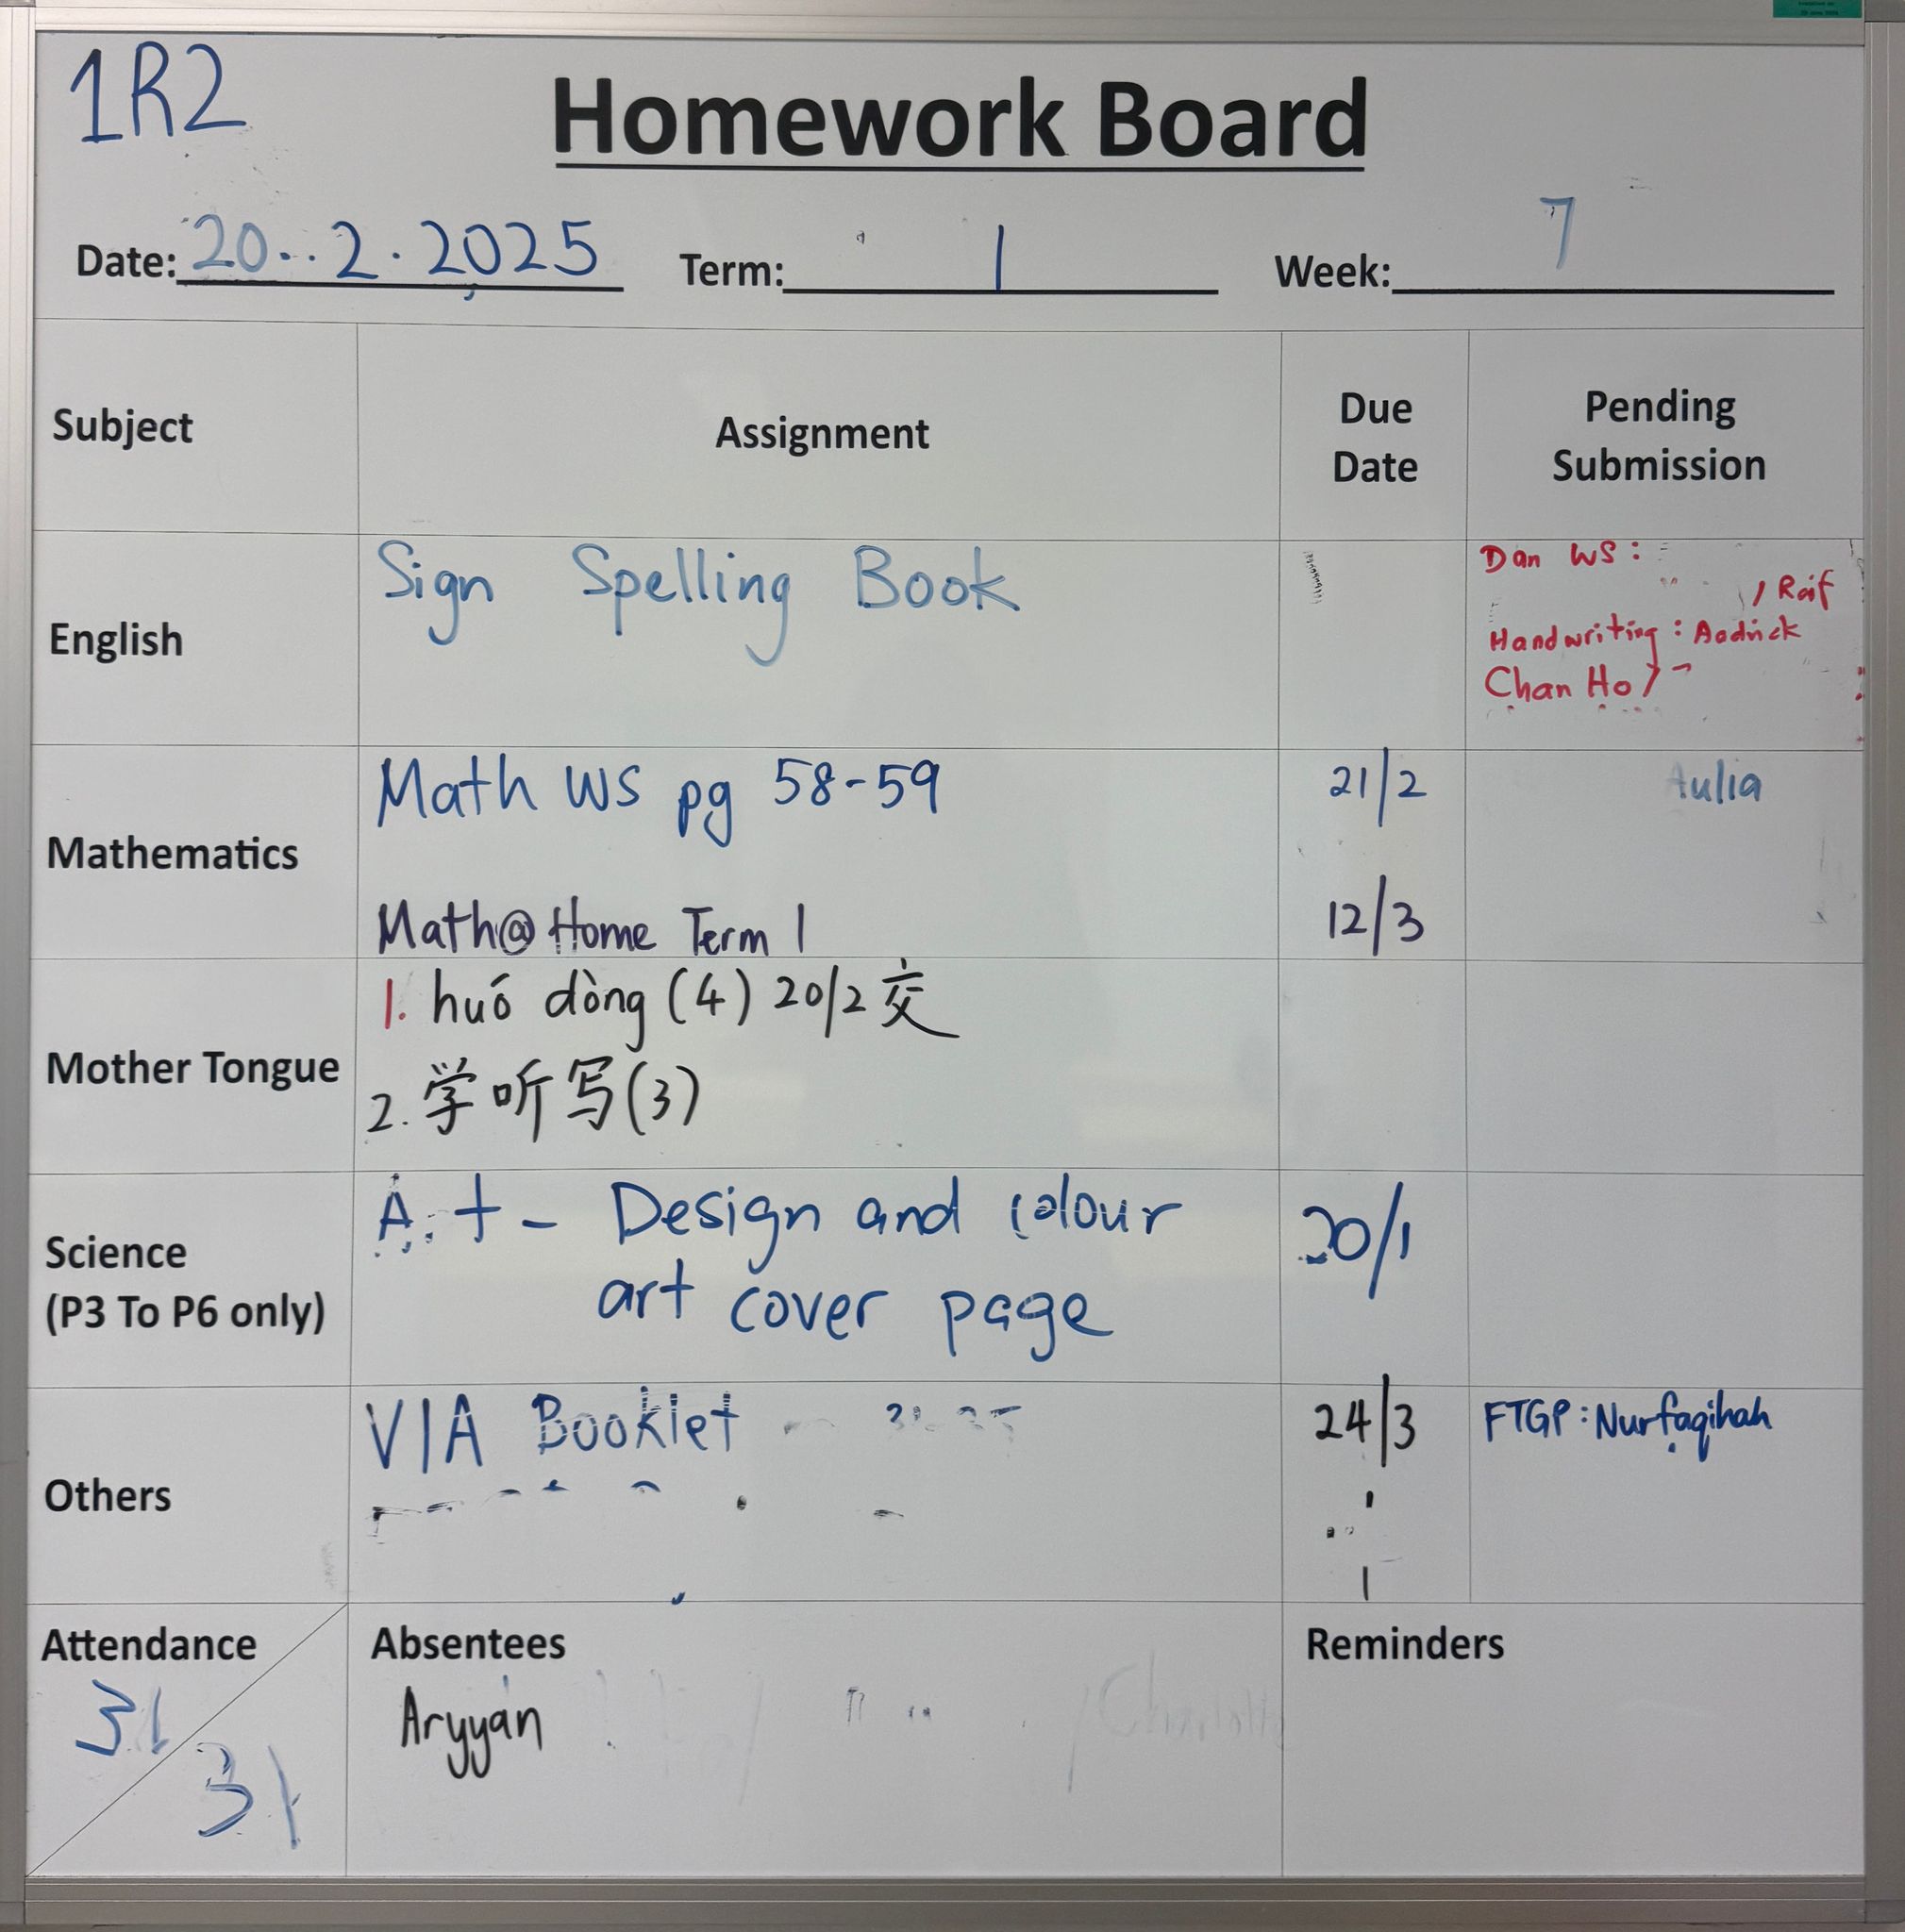 1R2
Homework Board
Date: 20..2.2025 Term: 1 Week: 7
Subject
Assignment
Due
Date
Pending
Submission
English
Sign Spelling Book
Dan WS:
/ Raif
Handwriting: Aadrick
Chan Ho /
Mathematics
Math WS pg 58-59
21/2
Aulia
Math@Home Term 1
12/3
Mother Tongue
1. huó dòng (4) 20/2 交
2. 学听写(3)
Science
(P3 To P6 only)
- Design and colour
art cover page
Others
VIA Booklet
24/3
FTGP: Nurfaqihah
Attendance
31
31
Absentees
Aryyan
Reminders